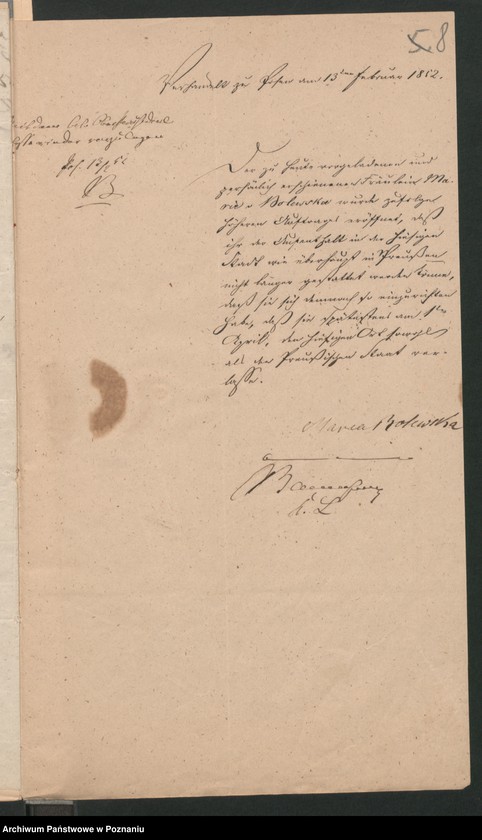 58
Verhandelt zu Posen am 13ten Februar 1852.
Pos. 13/2 52
B
Der zu heute vorgeladenen und
persönlich erschienenen Fräulein Ma-
ria v Bolewska wurde zufolge
höheren Auftrages eröffnet, daß
ihr der Aufenthalt in der hiesigen
Stadt wie überhaupt in Preußen
nicht länger gestattet werden könne,
daß sie sich demnach so einzurichten
habe, daß sie spätestens am 1ten
April, den hiesigen Ort sowohl
als den Preußischen Staat ver-
lasse.
Maria Bolewska
Archiwum Państwowe w Poznaniu